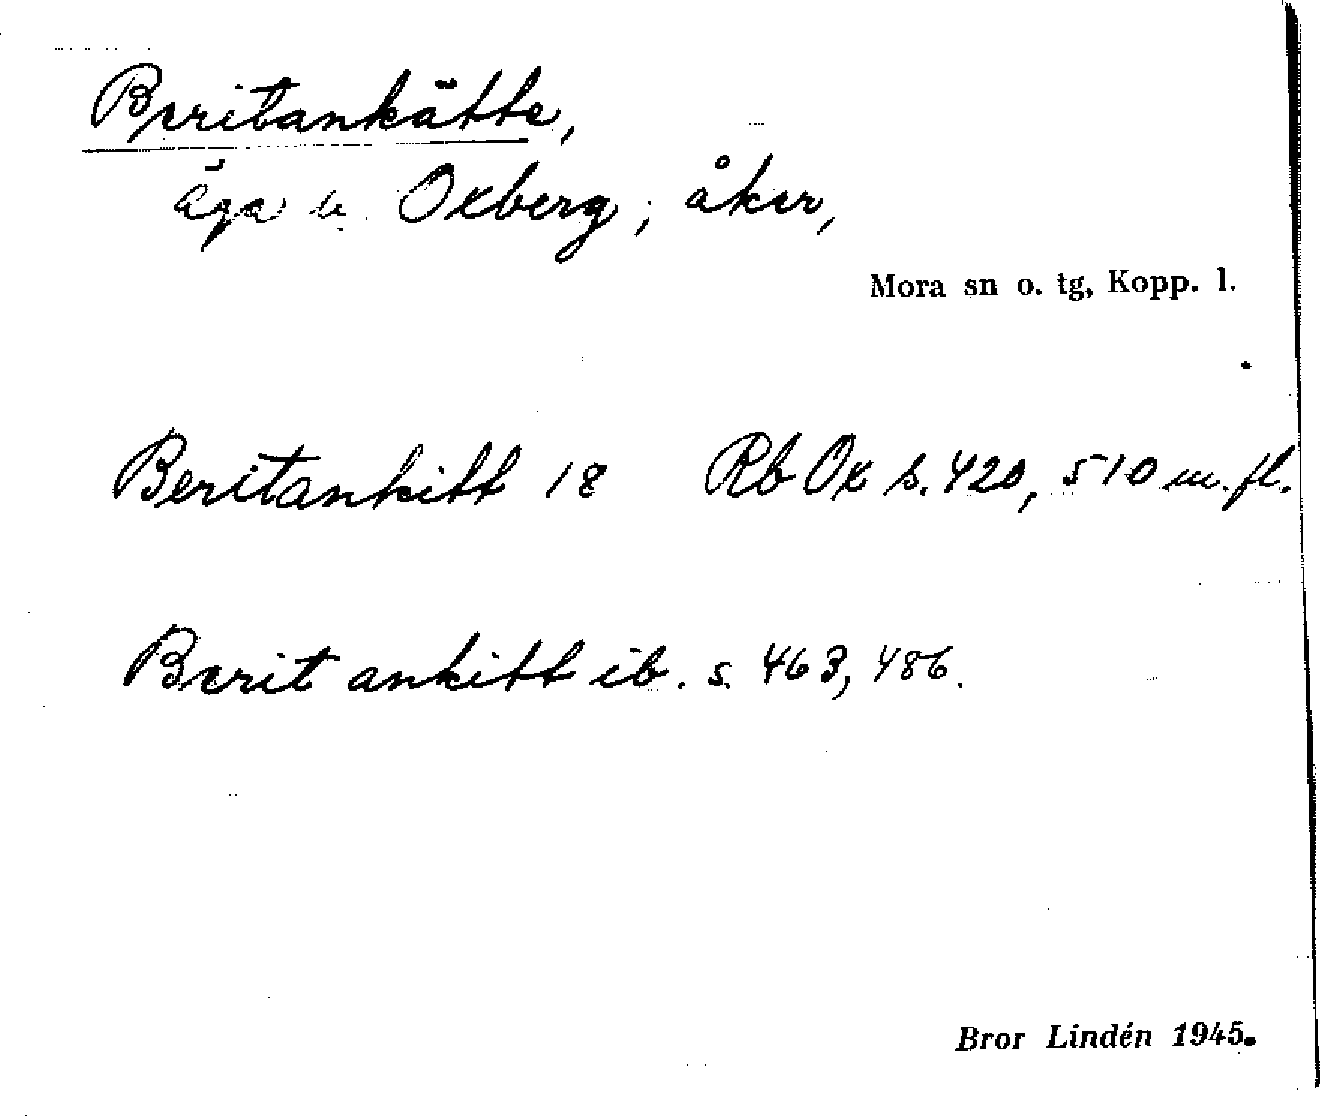 Beritankätte,
äga u. Oxberg; åker,
Mora sn o. tg, Kopp. l.
Beritankitt 18 Rb Ox s. 420, 510 m. fl.
Berit ankitt ib. s. 463, 486.
Bror Lindén 1945.